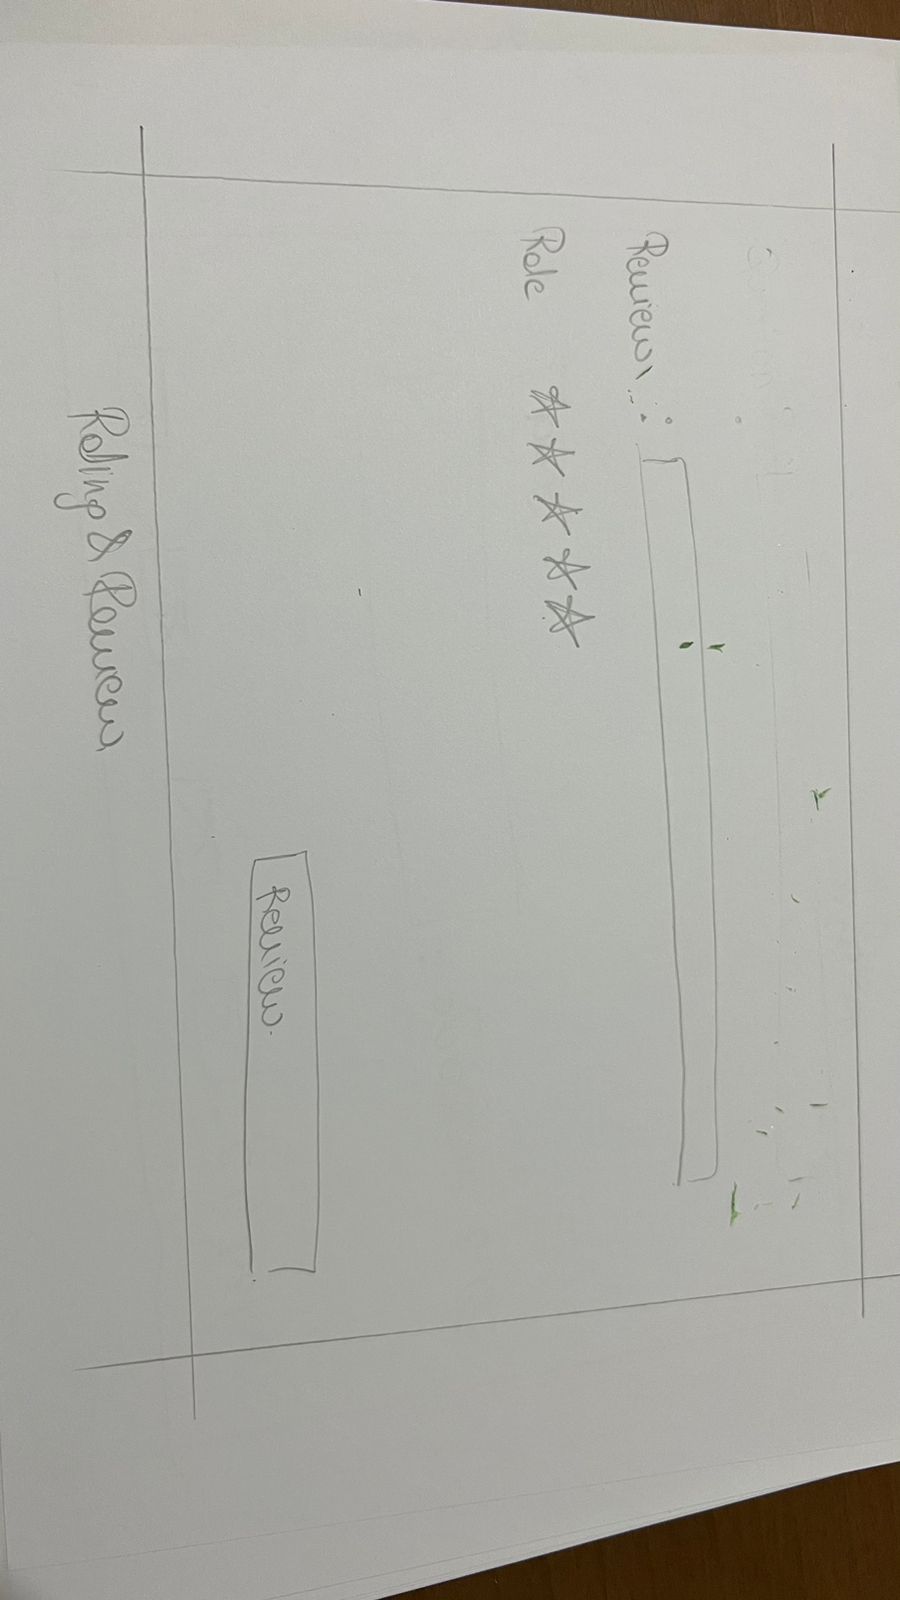 Review :
Rate ☆ ☆ ☆ ☆ ☆
Review.
Rating & Review